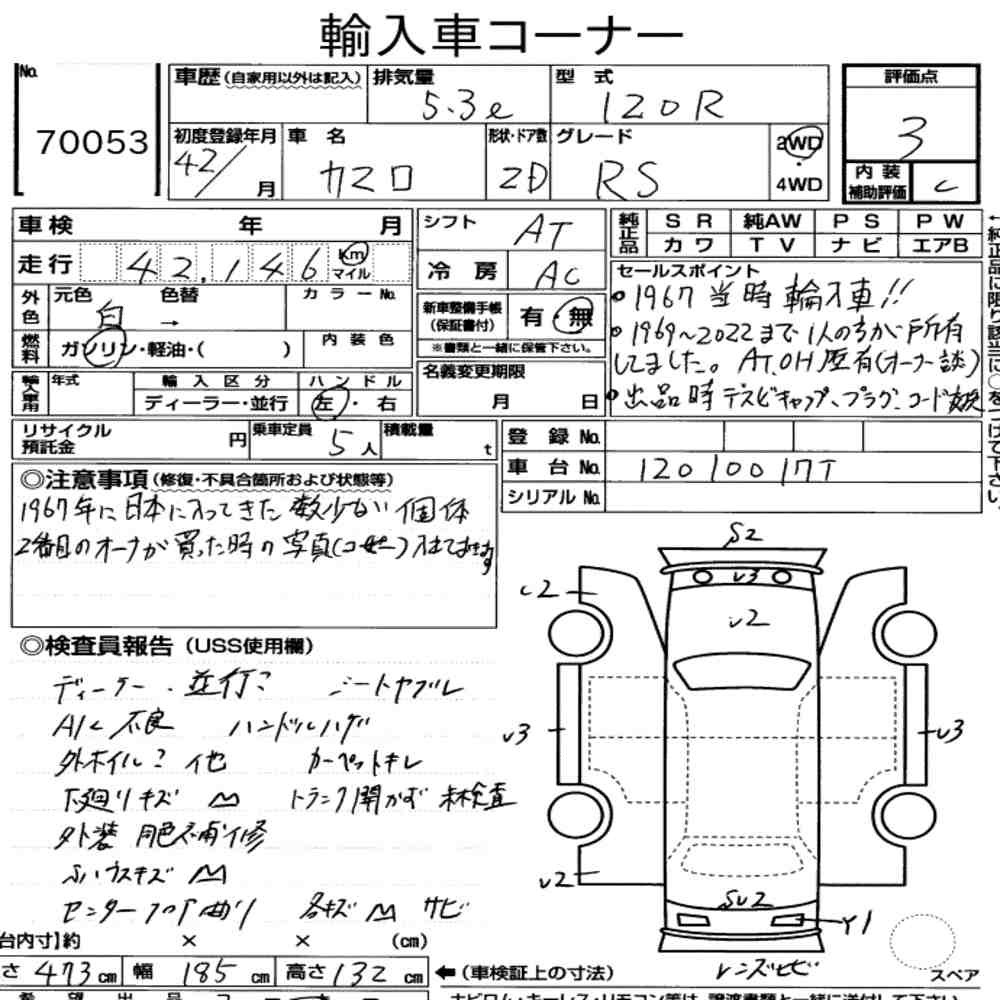 輸入車コーナー
No.
70053
車歴(自家用以外は記入)
排気量
5.3ℓ
型式
120R
評価点
3
初度登録年月
42/ 月
車名
カマロ
形状・ドア数
2D
グレード
RS
2WD
・
4WD
内装
補助評価
C
車検 年 月
シフト
AT
純正品
SR 純AW PS PW
カワ TV ナビ エアB
走行
42,146
Km
マイル
冷房
AC
セールスポイント
・1967当時輸入車!!
・1969~2022まで1人の方が所有
してました。AT.OH歴有(オーナー談)
・出品時デスビキャップ、プラグ、コード交換
外色
元色 色替 カラーNo.
白 →
新車整備手帳
(保証書付)
有・無
※書類と一緒に保管下さい。
燃料
ガソリン・軽油・( )
内装色
輸入車用
年式
輸入区分
ハンドル
ディーラー・並行
左・右
名義変更期限
月 日
リサイクル
預託金
円
乗車定員
5人
積載量
t
登録No.
車台No.
12010017T
シリアルNo.
◎注意事項(修復・不具合箇所および状態等)
1967年に日本に入ってきた数少ない個体
2番目のオーナーが買った時の写真(コピー)
◎検査員報告(USS使用欄)
ディーラー・並行? シートヤブレ
A/C不良 ハンドルハゲ
外ホイル? 他 カーペットキレ
下廻りキズ M トランク開かず 未検査
外装 色 補修
キズ M
センターフロア曲り 各キズ M サビ
S2
U3
U2
U3
U3
U2
SU2
Y1
レンズヒビ
スペア
台内寸】約 × × (cm)
さ 473cm 幅 185cm 高さ 132cm
←(車検証上の寸法)
希望出品コ
←純正品に限り該当に○をつけて下さい。